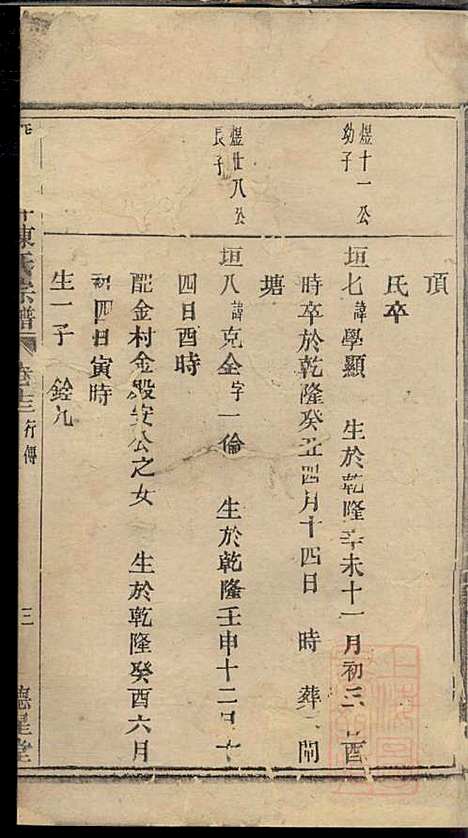 頂
氏卒
煜十一公
幼子
垣七諱學顯 生於乾隆辛未十一月初三 酉
時卒於乾隆癸丑四月十四日 時 葬 閘
塘
煜廿八公
長子
垣八諱克全字一倫 生於乾隆壬申十二月十
四日酉時
配金村金殿安公之女 生於乾隆癸酉六月
初四日寅時
生一子 銓九
陳氏宗譜 卷十三 行傳 三 德星堂